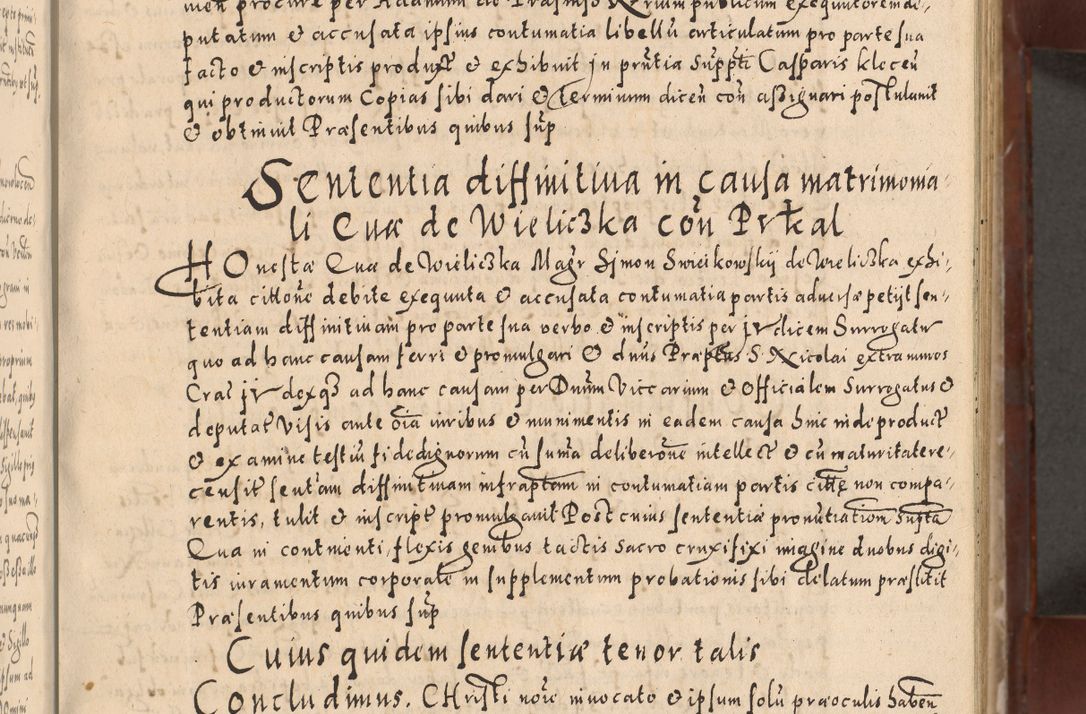 putatum & accusata ipsius contumatia libellū articulatum pro parte sua
facto & inscriptis produxt & exhibuit in prñtia Suppti Casparis klecen
qui productorum Copias sibi dari & terminum dicen con assignari postulavit
& obtinuit Præsentibus quibus sup
Sententia diffinitiua in causa matrimonia-
li Euæ de Wieliczka con Prkal
HOnestæ Euæ de Wieliczka Magr Simon Swiecikowskij de Wieliczka exhi-
bita cittone debite exequuta & accusata contumatia partis aduersæ petijt sen-
tentiam diffinitiuam pro parte sua verbo & inscriptis per jvdicem Surrogatũ
quo ad hanc causam ferri & promulgari & dnus Præptus S. Nicolai extra muros
Crac jvdexq3 ad hanc causam per Dnum Viccarium & Officialem Surrogatus &
deputat Visis ante oĩa iuribus & munimentis in eadem causa hinc inde product
& examine testiũ fidedignorum cũ suma deliberone intellect & cũ maturitate re-
censit sentam diffinitiuam infraptam in contumatiam partis cittæ non compa-
rentis, tulit & inscript promulgauit Post cuius sententiæ pronũtiationem Supta
Eua in continenti, flexis genibus tactis Sacro cruxifixi imagine duobus digi-
tis iuramentum corporale in supplementum probationis sibi delatum præstitit
Præsentibus quibus sup
Cuius quidem sententiæ tenor talis
Concludimus. CHristi noie inuocato & ipsum solũ præ oculis haben